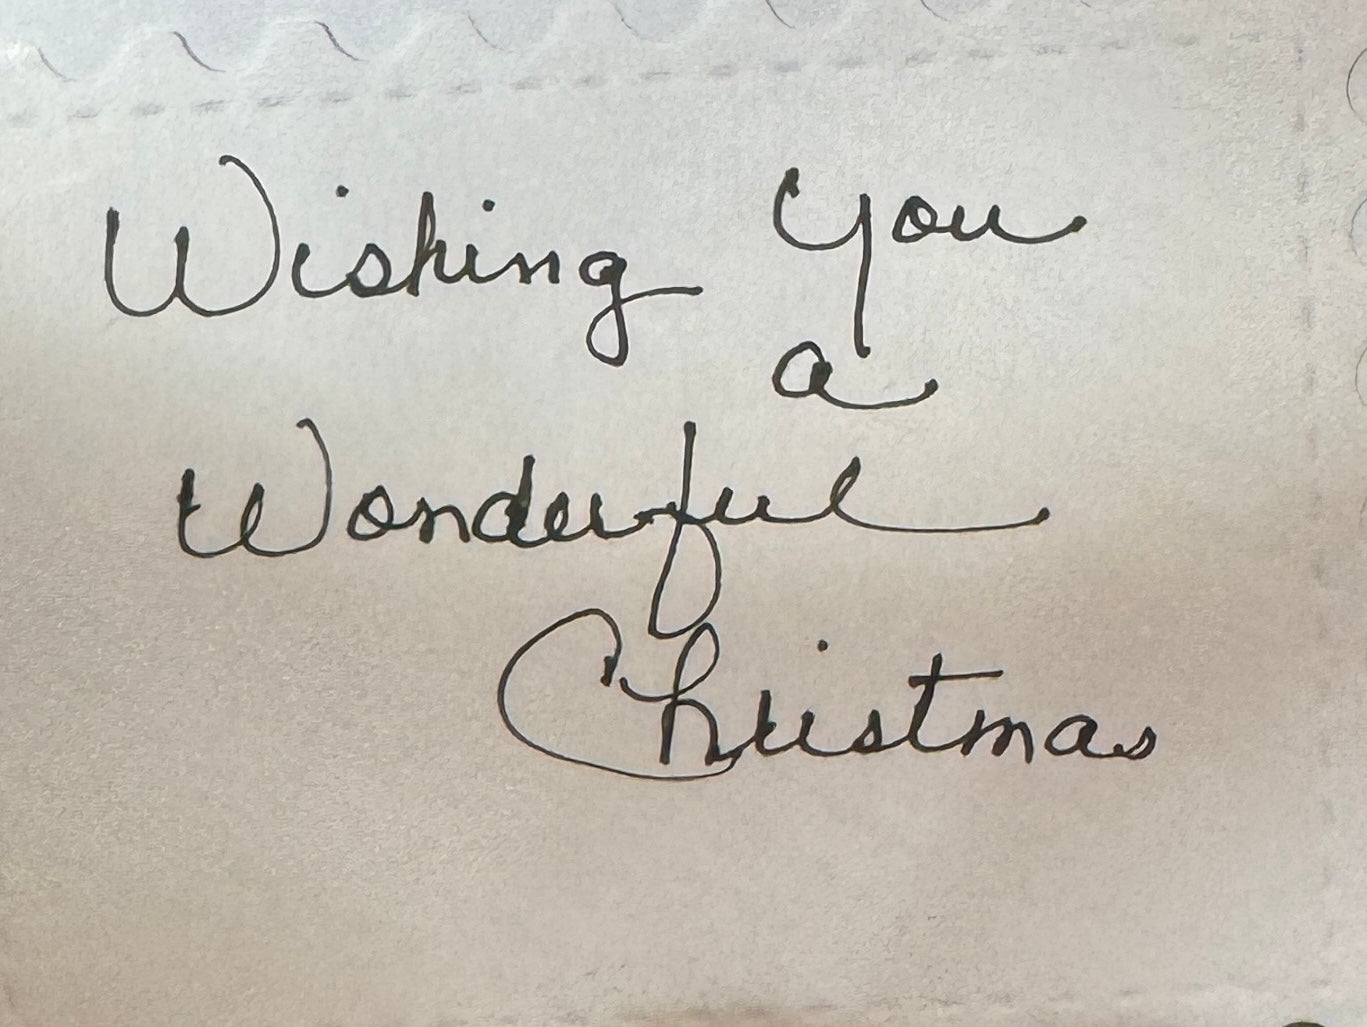 Wishing you
a
Wonderful
Christmas